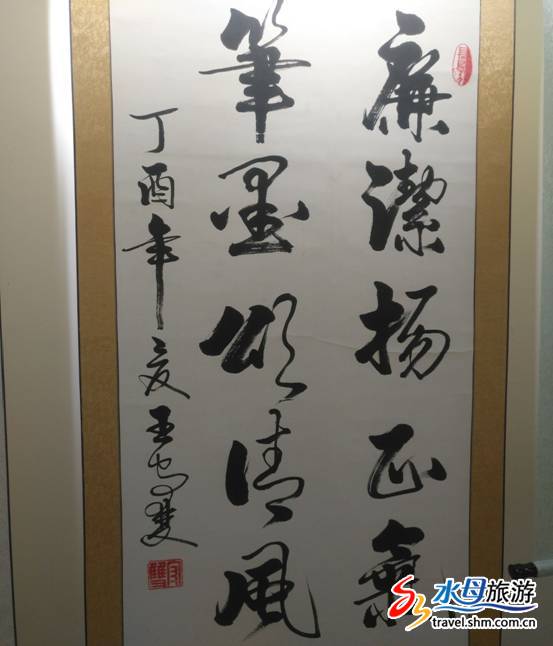 廉潔揚正氣
筆墨頌清風
丁酉年夏王雙
水母旅游
travel.shm.com.cn